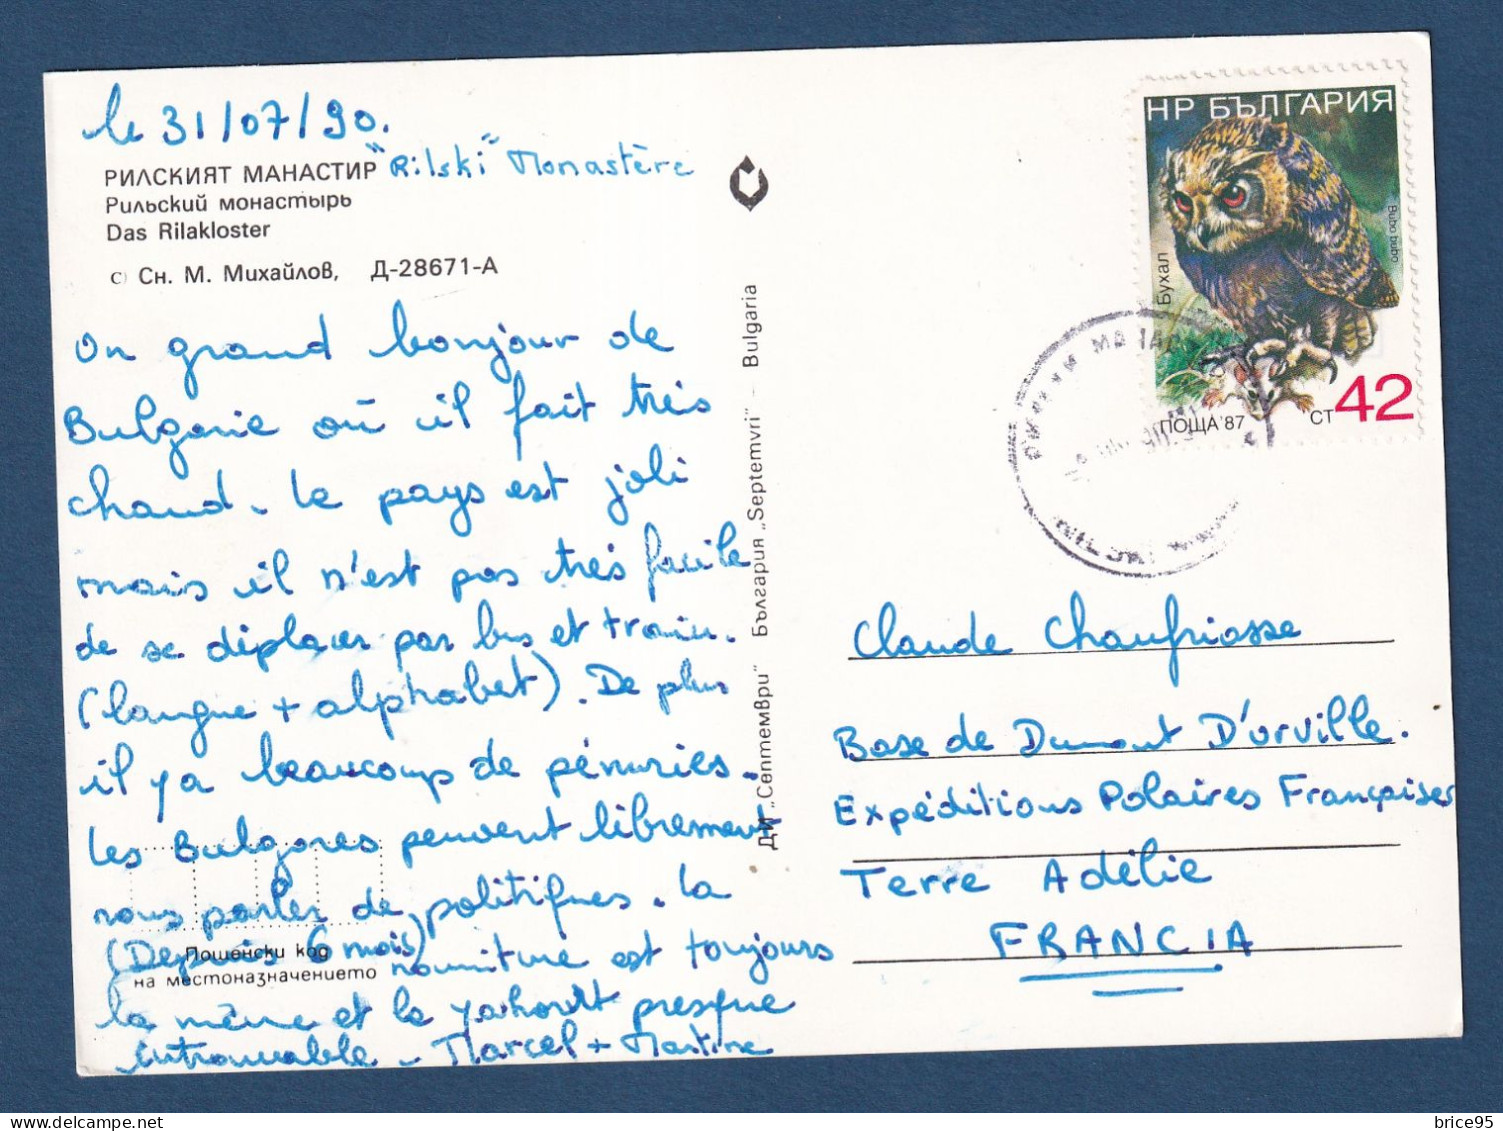 le 31/07/90.
РИЛСКИЯТ МАНАСТИР "Rilski" Monastère
Рильский монастырь
Das Rilakloster
С) Сн. М. Михайлов, Д-28671-А
Un grand bonjour de
Bulgarie où il fait très
chaud. Le pays est joli
mais il n'est pas très facile
de se déplacer par bus et train.
(langue + alphabet). De plus
il y a beaucoup de pénuries.
Les Bulgares peuvent librement
nous parler de politiques. La
(Depuis 6 mois) nourriture est toujours
Пощенски код
на местоназначението
la même et le yahourt presque
introuvable - Marcel + Martine
ДИ „Септември" България „Septemvri" - Bulgaria
НР БЪЛГАРИЯ
Бухал
Bubo bubo
ПОЩА'87
СТ 42
Claude Chaufriasse
Base de Dumont D'Urville.
Expéditions Polaires Françaises
Terre Adélie
FRANCIA
brice95